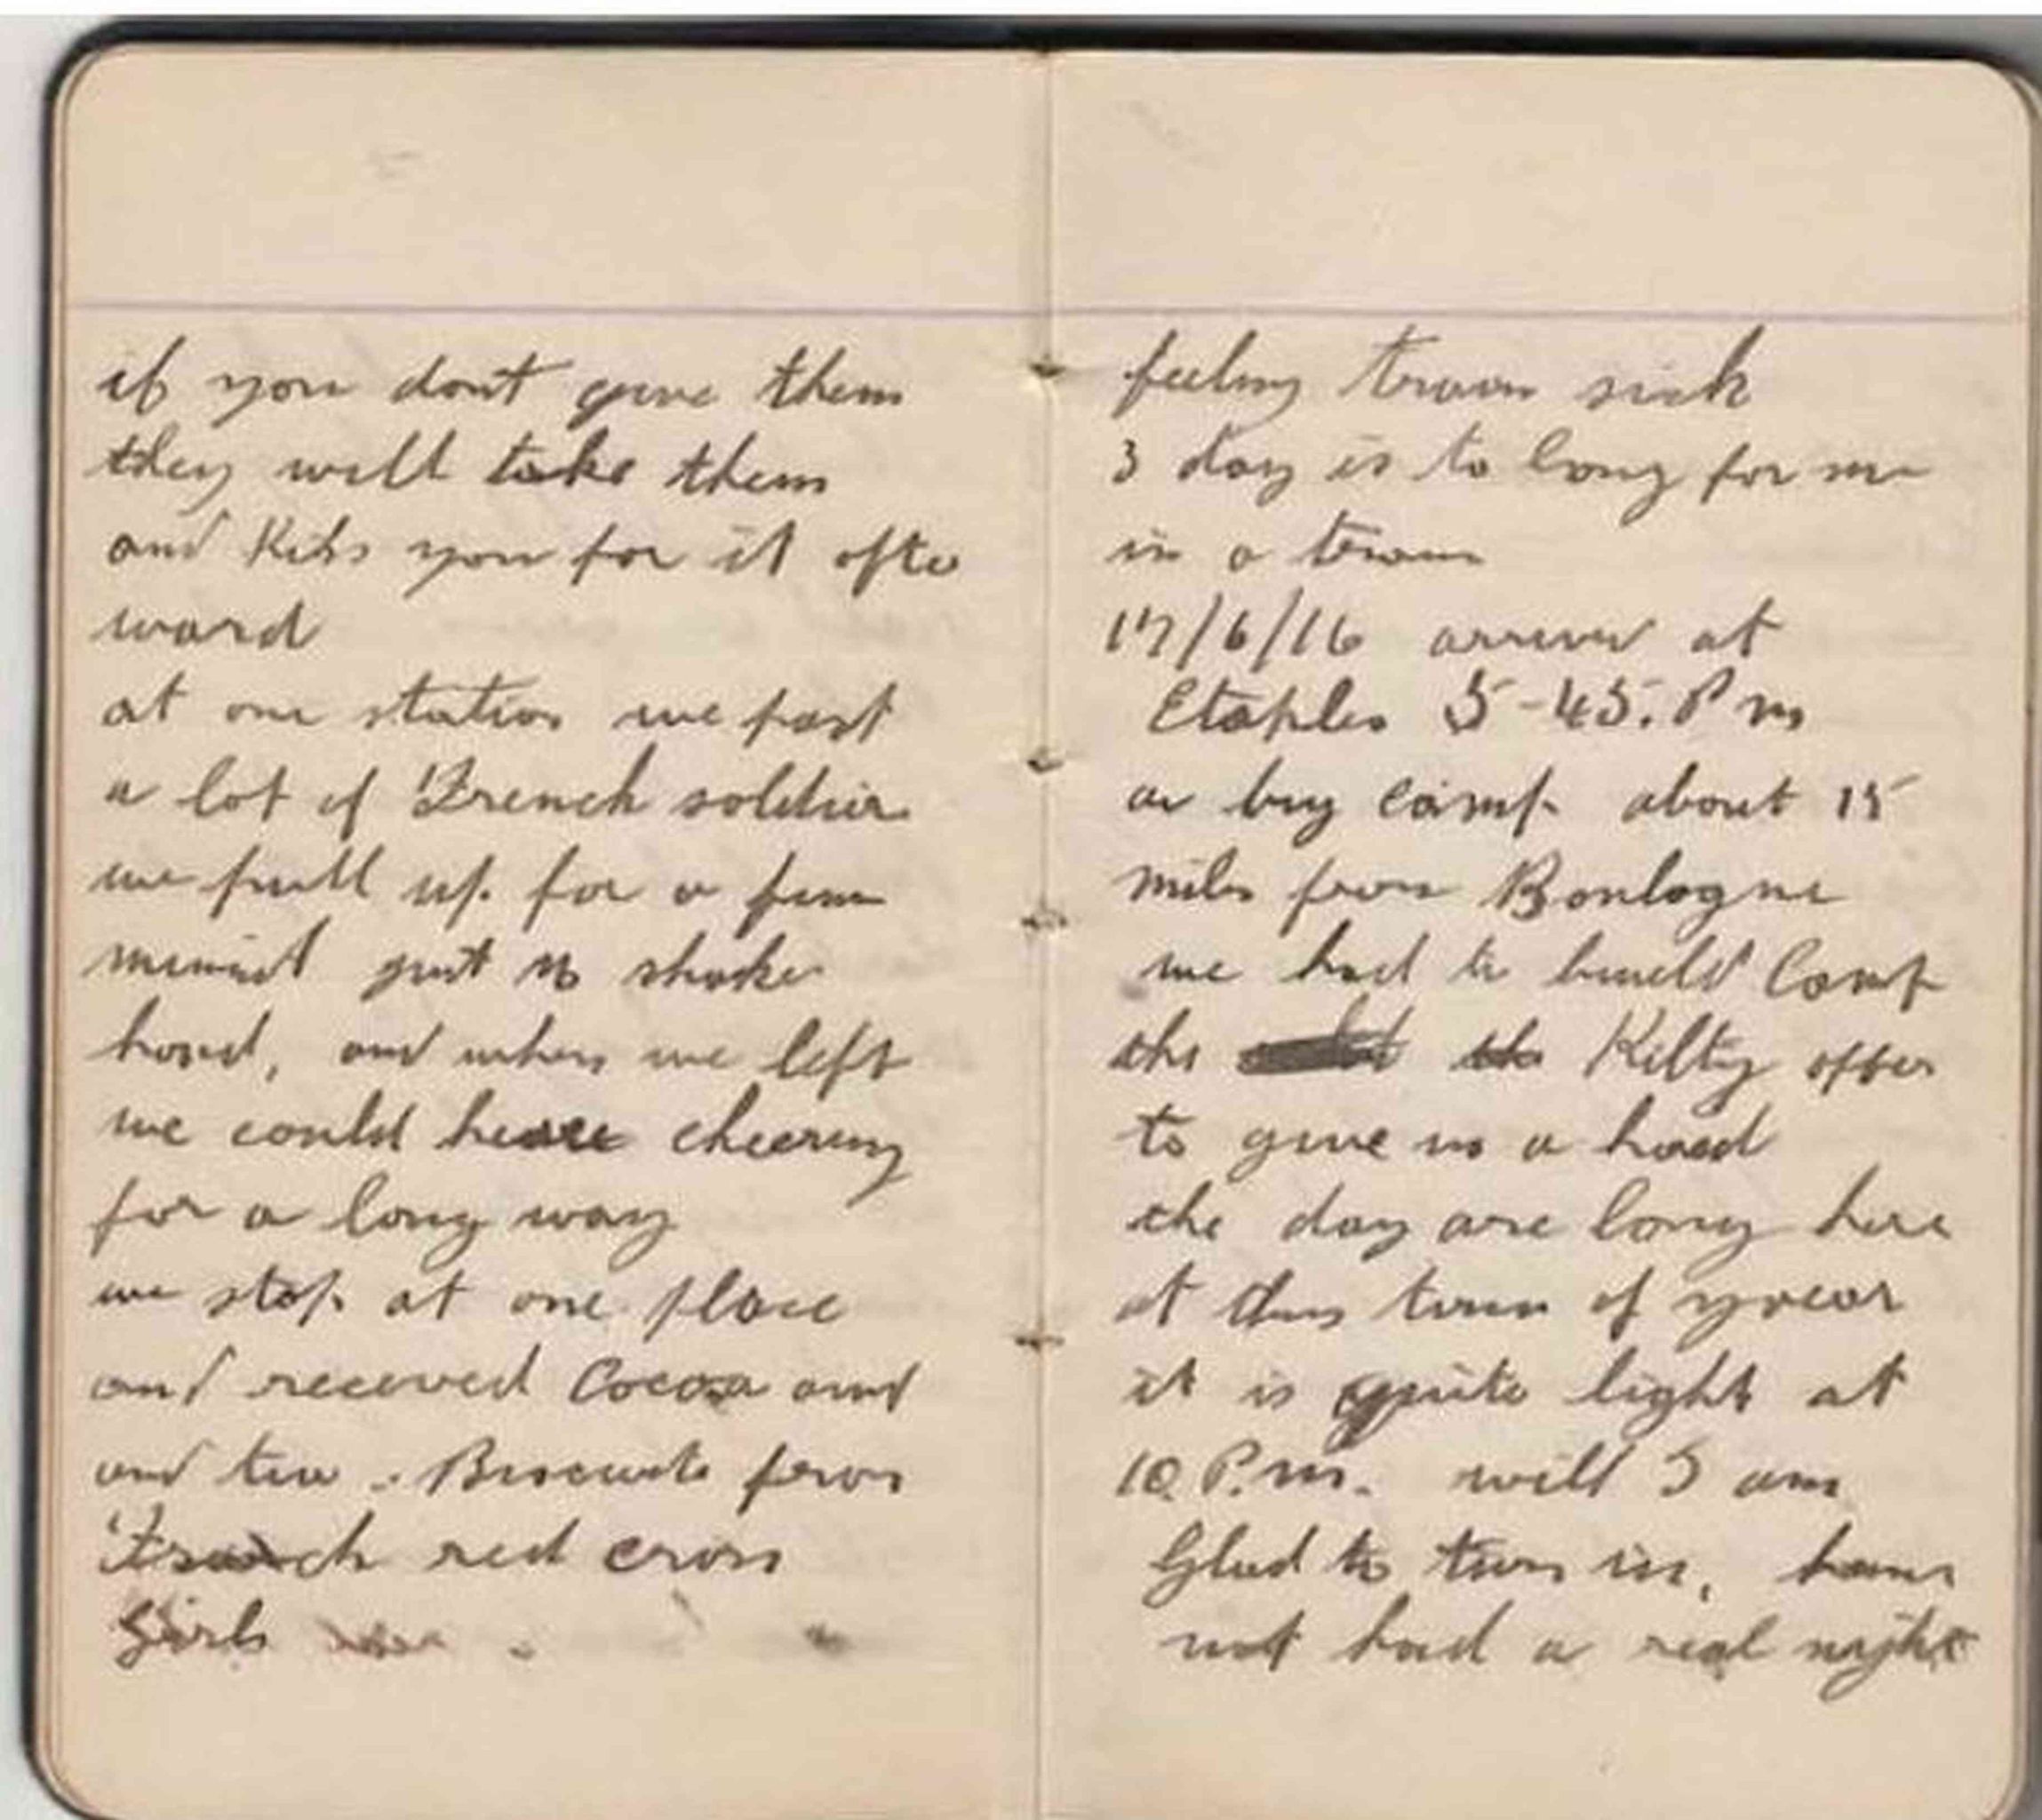 if you dont give them
they will take them
and Kiss you for it after
ward
at one station we past
a lot of French soldier
we pull up for a few
minuit just to shake
hand, and when we left
we could heare cheering
for a long way
we stop at one place
and received Cocoa and
and tea . Biscuits from
French red cross
Girls
feeling train sick
3 day is to long for me
in a train
17/6/16 arrived at
Etaples 5-45. P m
a big camp about 15
miles from Boulogne
we had to build Camp
the Kilty offer
to give us a hand
the day are long here
at this time of yyear
it is quite light at
10 P.m. will 3 am
Glad to turn in, have
not had a real night